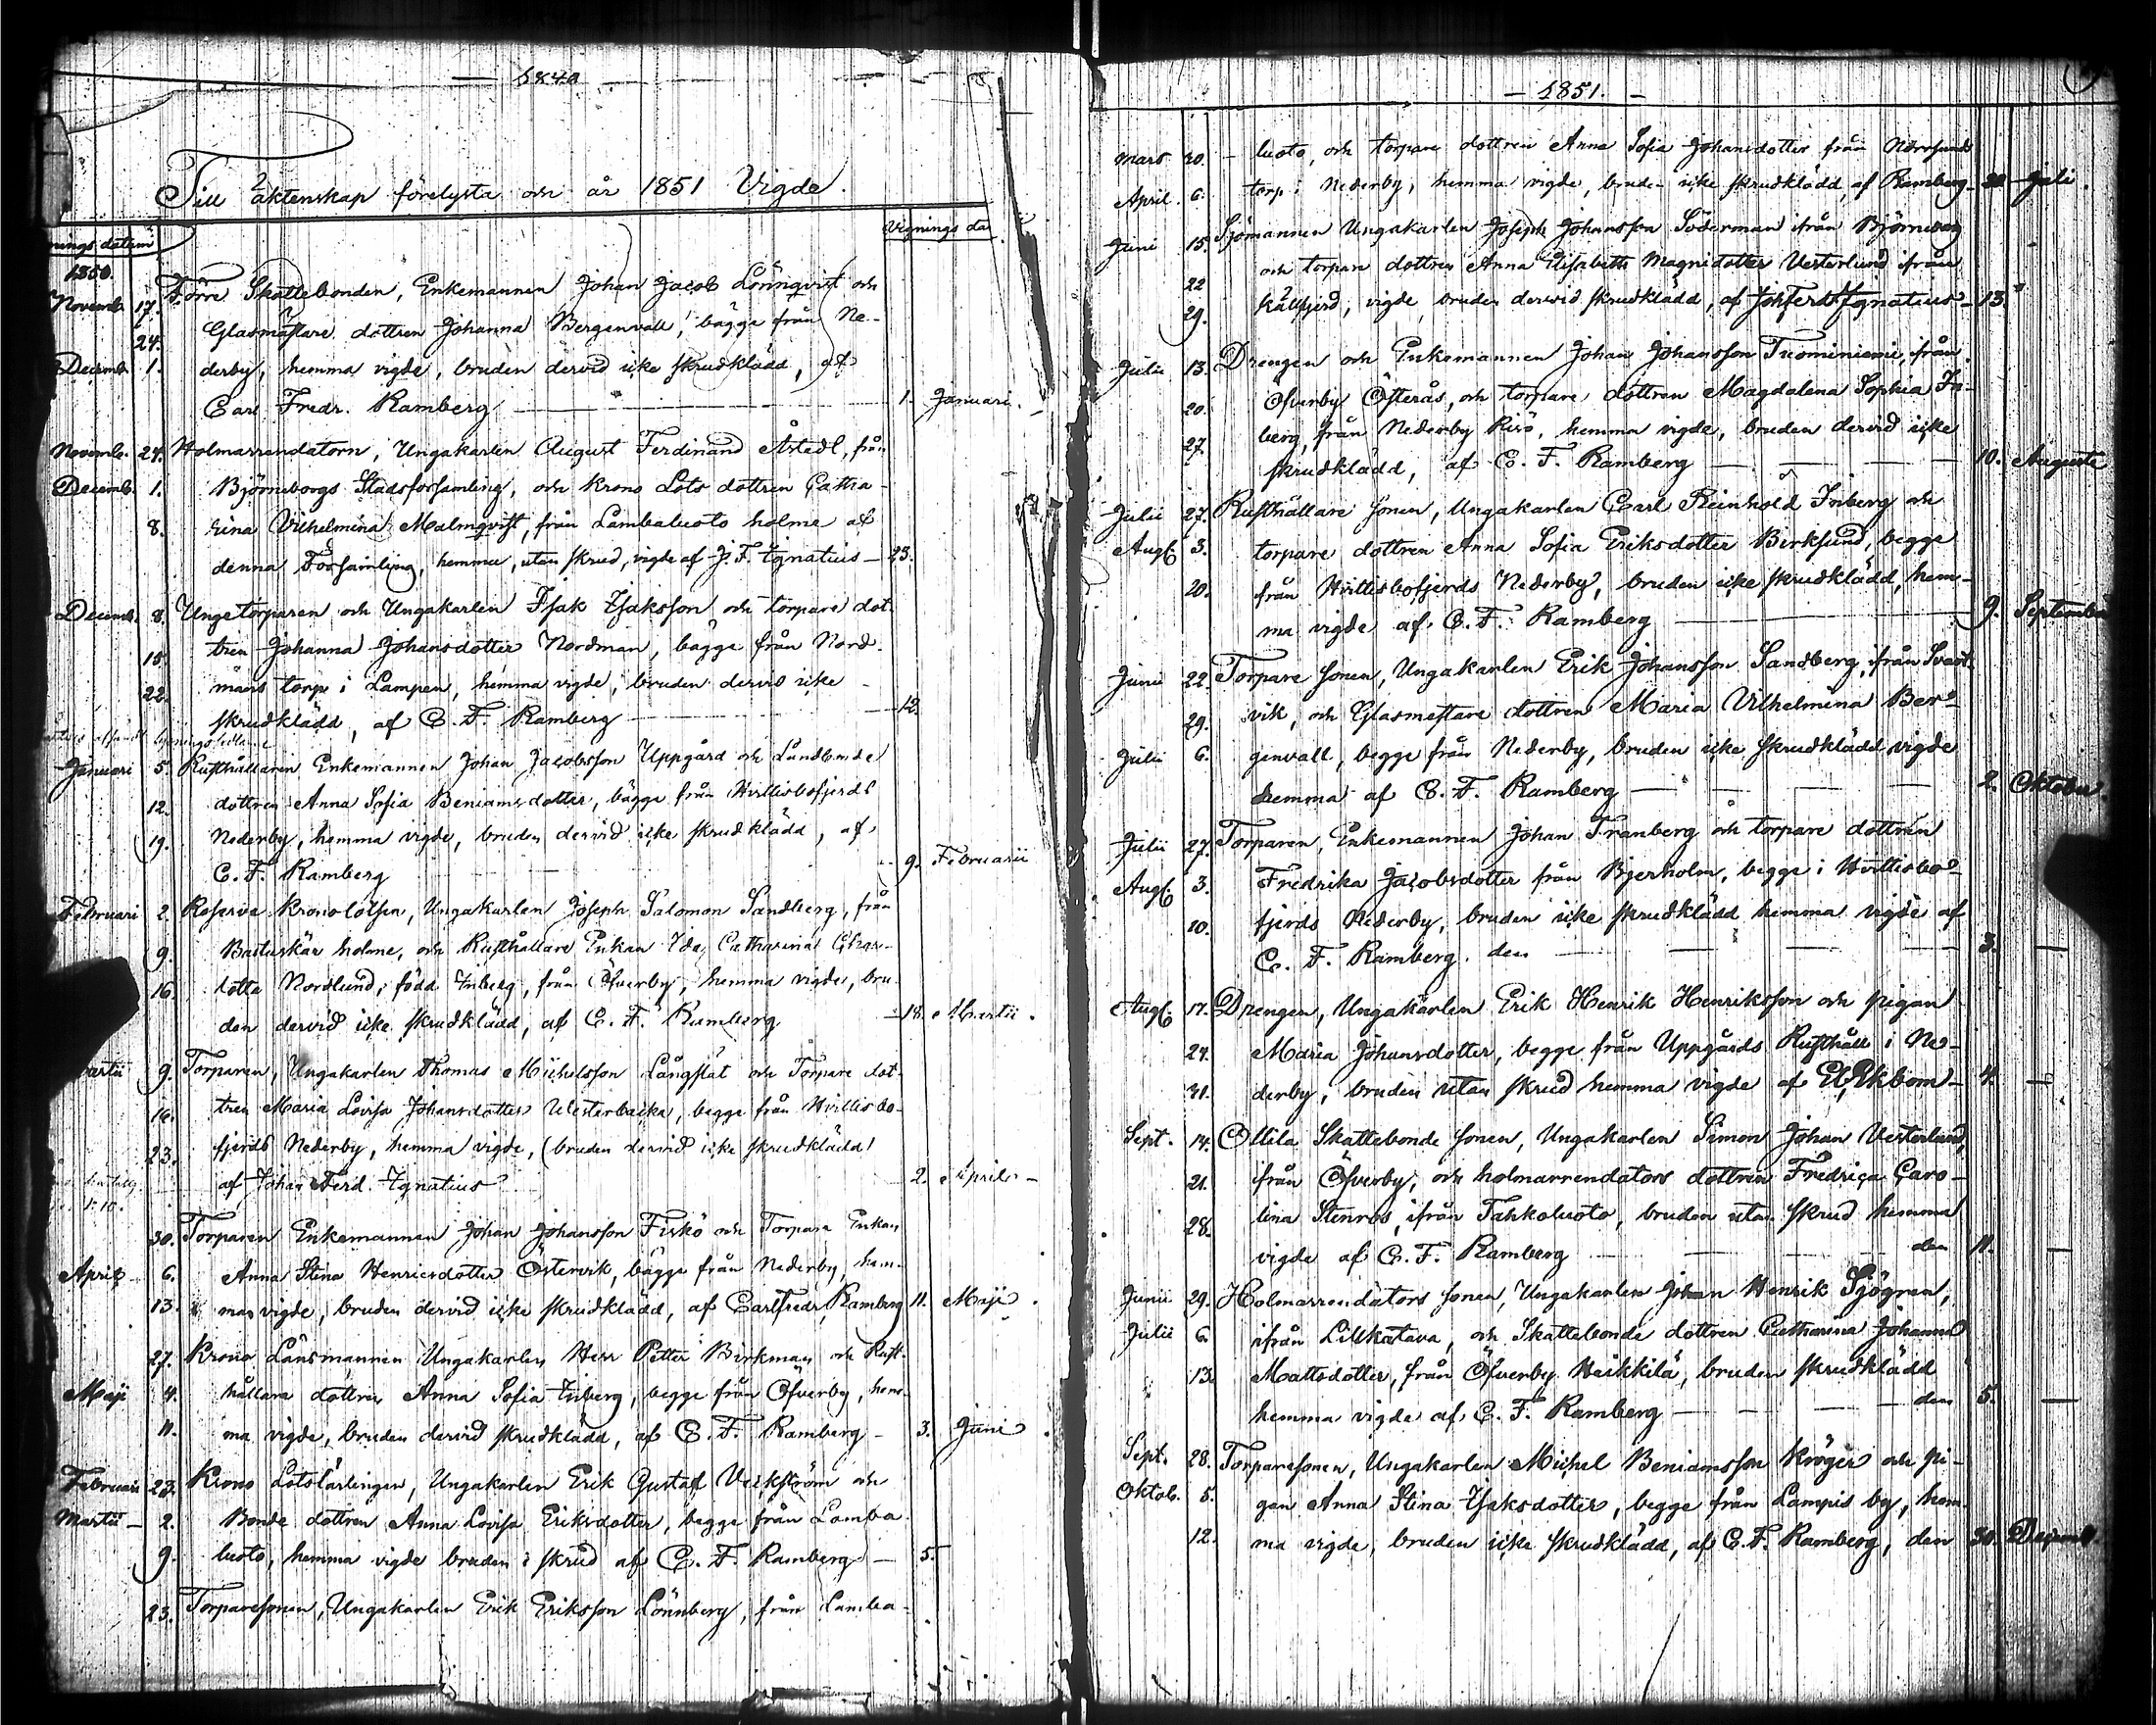 — 1840 —
Till äktenskap förelysta och år 1851 Vigde.
Vignings da
nings datum
1850.
Novemb. 17. Förre Skattebonden, Enkemannen Johan Jacob Lönnqvist och
24. Glasmästare dottren Johanna Bergenvall, bägge från Ne-
Decemb. 1. derby, hemma vigde, bruden dervid icke skrudklädd, af
Carl Fredr. Ramberg — 1. Januari.
Novemb. 24. Holmarrendatorn, Ungakarlen August Ferdinand, från
Decemb. 1. Björneborgs Stadsförsamling, och Krono Lots dottren Catha-
8. rina Vilhelmina Malmqvist, från Lambaluoto holme af
denna Församling, hemma, utan skrud, vigde af J. F. Ignatius — 23.
Decemb. 8. Unge torparen och Ungakarlen Isak Isaksson och torpare dot-
15. tren Johanna Johansdotter Nordman, bägge från Nord-
22. mans torp i Lampen, hemma vigde, bruden dervid icke
skrudklädd, af C. F. Ramberg — 12.
Januari 5. Rusthållaren Enkemannen Johan Jacobsson Uppgård och Landbonde
12. dottren Anna Sofia Beniamsdotter, bägge från Hvittisbofjerds
19. Nederby, hemma vigde, bruden dervid icke skrudklädd, af
C. F. Ramberg 9. Februarii
Februari 2. Reserve Kronolotsen, Ungakarlen Joseph Salomon Sandberg, från
9. Bastuskär holme, och Rusthållare Enkan Ida Catharina
16. dotter Nordlund, född Inberg, från Öfverby, hemma vigde, bru-
den dervid icke skrudklädd, af C. F. Ramberg — 18. Martii.
Martii 9. Torparen, Ungakarlen Thomas Michelsson Långflat och Torpare dot-
16. tren Maria Lovisa Johansdotter Westerbacka, begge från Hvittisbo-
23. fjerds Nederby, hemma vigde, (bruden dervid icke skrudklädd)
af Johan Ferd. Ignatius 2. April —
30. Torparen Enkemannen Johan Johansson Fiskö och Torpare Enkan
April 6. Anna Stina Henricsdotter Östervik, bägge från Nederby, hem-
13. ma vigde, bruden dervid icke skrudklädd, af Carl Fredr. Ramberg 11. Maji.
27. Krono Länsmannen Ungakarlen Herr Petter Birkman och Rust-
Maji 4. hållare dottren Anna Sofia Inberg, begge från Öfverby, hem-
11. ma vigde, bruden dervid skrudklädd, af C. F. Ramberg — 3. Juni.
Februari 23. Krono Lotslärlingen, Ungakarlen Erik Gustaf Veckström och
Martii — 2. Bonde dottren Anna Lovisa Eriksdotter, begge från Lamba-
9. luoto, hemma vigde bruden i skrud af C. F. Ramberg — 5.
23. Torparesonen, Ungakarlen Erik Eriksson Lönnberg, från Lamba-
— 1851. —
Mars 30. — luoto, och torpare dottren Anna Sofia Johansdotter från Norrsunds
April. 6. torp i Nederby, hemma vigde, bruden icke skrudklädd, af Ramberg — 20 Juli.
Juni 15. Sjömannen Ungakarlen Joseph Johansson Söderman ifrån Björneborg
22 och torpare dottren Anna Elisabeth Magnidotter Vesterlund ifrån
29. Källfjerd, vigde, bruden dervid skrudklädd, af Joh Ferd Ignatius — 13.
Julii 13. Drengen och Enkemannen Johan Johansson Tuominiemi, från
20. Öfverby Österås, och torpare dottren Magdalena Sophia In-
27. berg, från Nederby Risö, hemma vigde, bruden dervid icke
skrudklädd, af C. F. Ramberg — 10. Augusti
Julii 27. Rusthållare sonen, Ungakarlen Carl Reinhold Inberg och
Aug. 3. torpare dottren Anna Sofia Eriksdotter Birksund, begge
20. från Hvittisbofjerds Nederby, bruden icke skrudklädd, hem-
ma vigde af C. F. Ramberg — 9. September
Junii 22. Torpare sonen, Ungakarlen Erik Johansson Sandberg, ifrån Svart-
29. vik, och Glasmästare dottren Maria Vilhelmina Ber-
Julii 6. genvall, begge från Nederby, bruden icke skrudklädd vigde
hemma af C. F. Ramberg — 2. Oktober.
Julii 27. Torparen, Enkemannen Johan Franberg och torpare dottren
Aug. 3. Fredrika Jacobsdotter från Bjerholm, begge i Hvittisbo-
10. fjerds Nederby, bruden icke skrudklädd hemma vigde af
C. F. Ramberg. den — 3. —
Aug. 17. Drengen, Ungakarlen Erik Henrik Henriksson och pigan
24. Maria Johansdotter, begge från Uppgårds Rusthåll i Ne-
31. derby, bruden utan skrud hemma vigde af Ekbom — 4. —
Sept. 14. Ollila Skattebonde sonen, Ungakarlen Simon Johan Vesterlund,
21. ifrån Öfverby, och holmarrendators dottren Fredrica Caro-
28. lina Stenros, ifrån Tahkoluoto, bruden utan skrud hemma
vigde af C. F. Ramberg — den 11. —
Junii 29. Holmarrendators sonen, Ungakarlen Johan Henrik Sjögren,
Julii 6. ifrån Lillkatava, och Skattebonde dottren Catharina Johanna
13. Mattsdotter, från Öfverby Heikkilä, bruden skrudklädd
hemma vigde af C. F. Ramberg — den 5. —
Sept. 28. Torparesonen, Ungakarlen Michel Beniamsson Kröger och pi-
Oktob. 5. gan Anna Stina Isaksdotter, begge från Lampis by, hem-
12. ma vigde, bruden icke skrudklädd, af C. F. Ramberg, den 30. Decemb